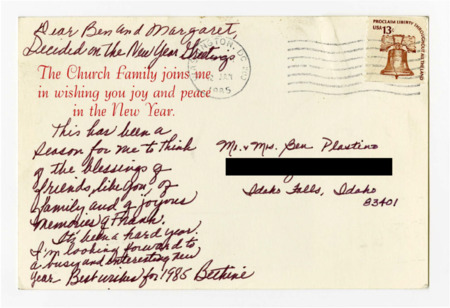 Dear Ben and Margaret,
Decided on the New Year Greetings
The Church Family joins me
in wishing you joy and peace
in the New Year.
This has been a
season for me to think
of the blessings of
friends, like you, of
family and of joyous
memories of Frank.
It's been a hard year.
I'm looking forward to
a busy and interesting new
year Best wishes for 1985 Bethine
WASHINGTON, DC
JAN
1985
PROCLAIM LIBERTY THROUGHOUT ALL THE LAND
USA 13c
Mr. & Mrs. Ben Plastino
Idaho Falls, Idaho
83401